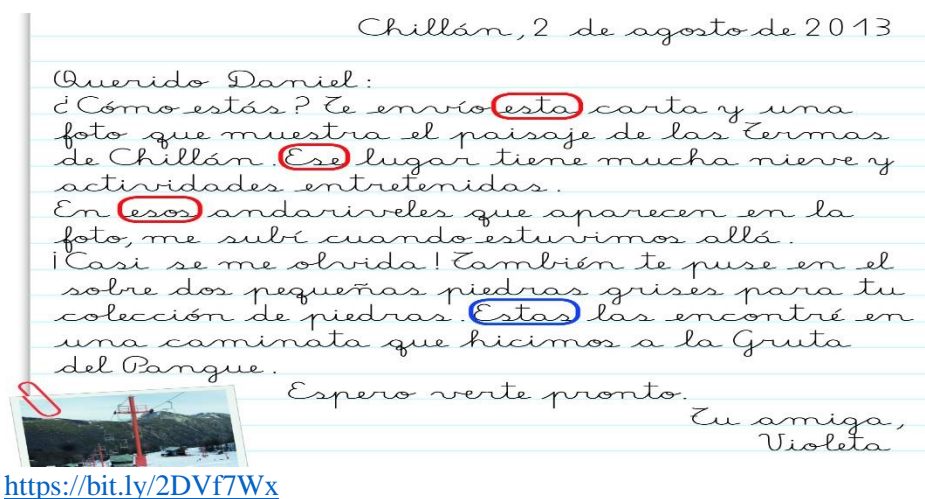 Chillán, 2 de agosto de 2013
Querido Daniel:
¿Cómo estás? Te envío esta carta y una
foto que muestra el paisaje de las Termas
de Chillán. Ese lugar tiene mucha nieve y
actividades entretenidas.
En esos andariveles que aparecen en la
foto, me subí cuando estuvimos allá.
¡Casi se me olvida! También te puse en el
sobre dos pequeñas piedras grises para tu
colección de piedras. Estas las encontré en
una caminata que hicimos a la Gruta
del Pangue.
Espero verte pronto.
Tu amiga,
Violeta
https://bit.ly/2DVf7Wx